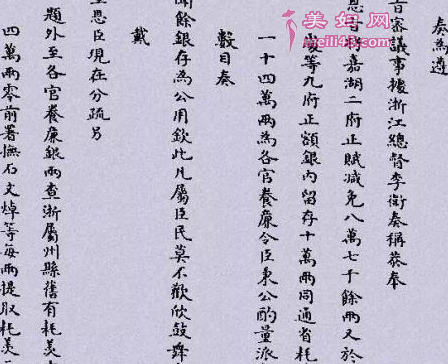 奏為遵
旨審議事據浙江總督李衛奏稱恭奉
恩旨將嘉湖二府正賦減免八萬七千餘兩又於
等九府正額銀內留存十萬兩同通省耗
一十四萬兩為各官養廉令臣秉公酌量派
數目奏
聞餘銀存為公用欽此凡屬臣民莫不歡欣鼓舞
戴
至愚臣現在分疏另
題外至各官養廉銀兩查浙屬州縣舊有耗羨
四萬兩零前署撫石文焯等每兩提取耗羨
美妇网
meili43.com